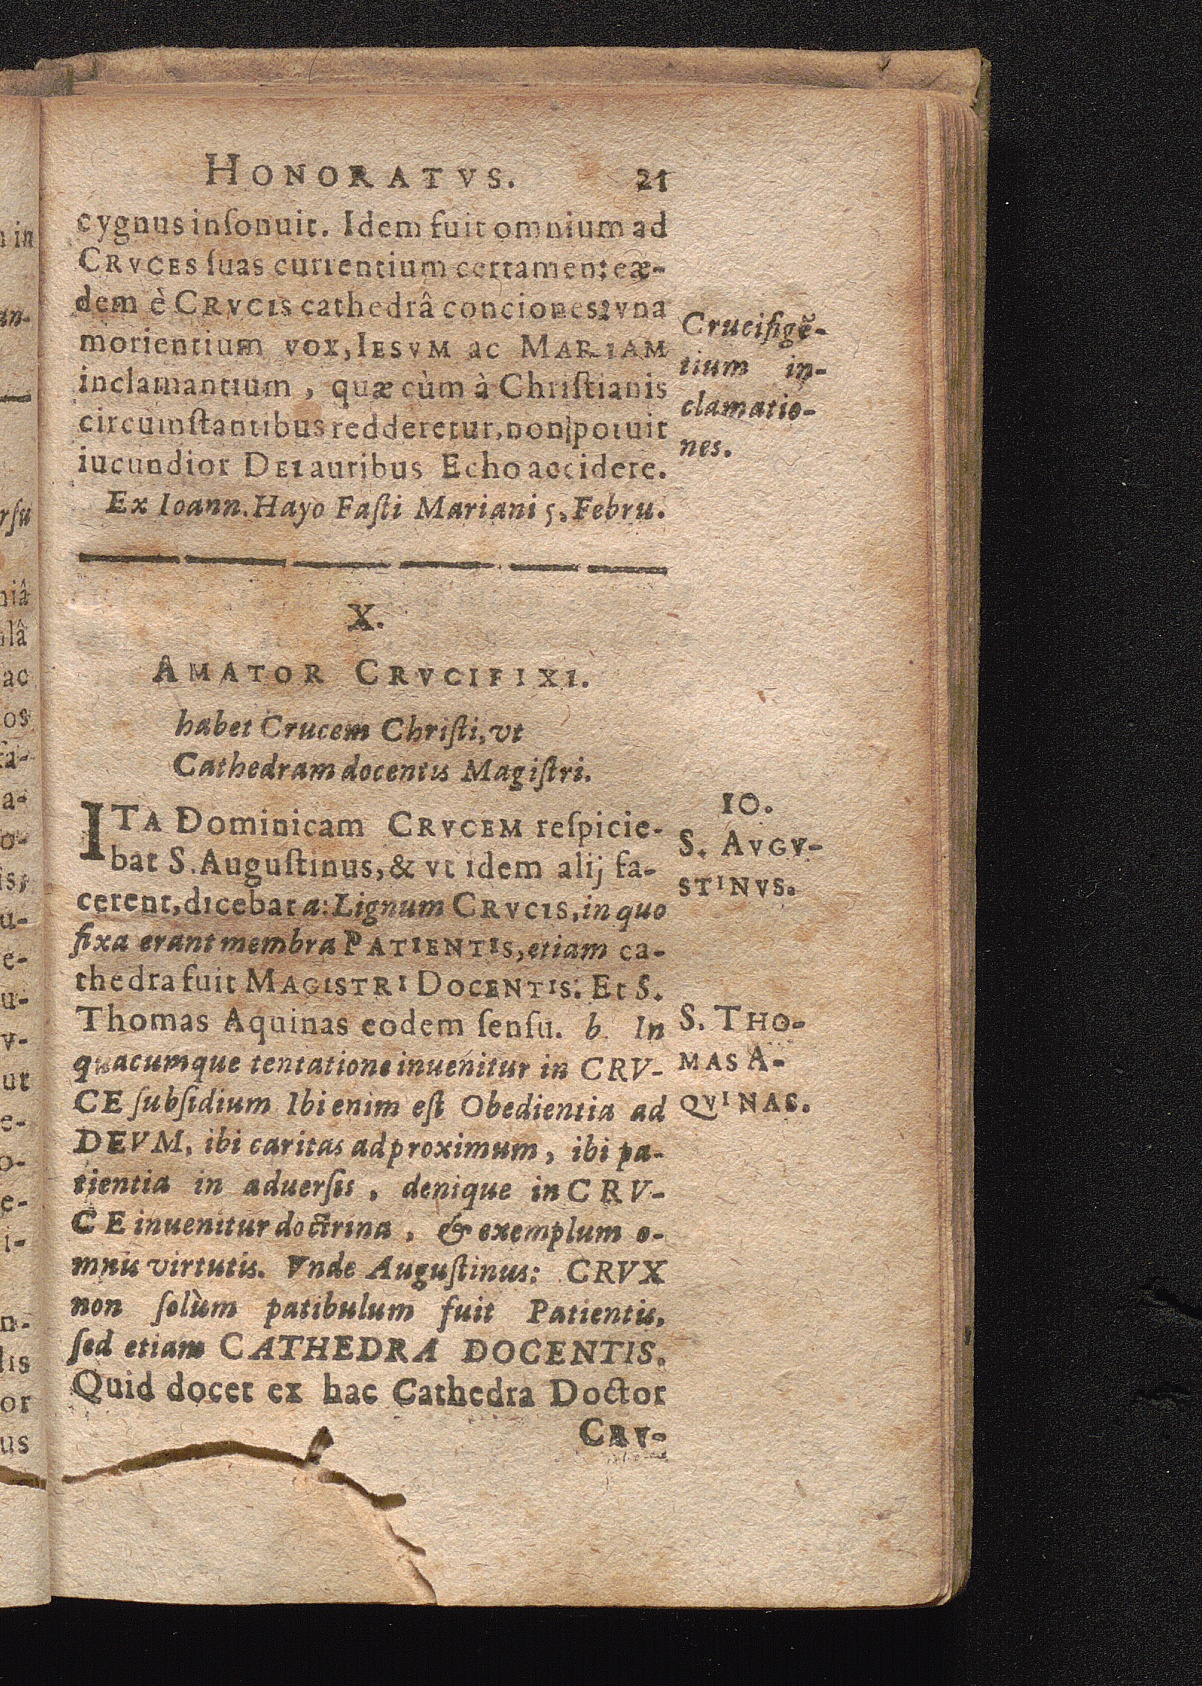 HONORATVS. 21
cygnus inſonuit. Idem fuit omnium ad
CRVCES ſuas currentium certamen: eæ-
dem è CRVCIS cathedrâ conciones: vna
morientium vox, IESVM ac MARIAM
inclamantium, quæ cùm à Chriſtianis
circumſtantibus redderetur, non potuit
iucundior DEI auribus Echo accidere.
Ex Ioann. Hayo Faſti Mariani 5. Febru.
Crucifigẽ-
tium in-
clamatio-
nes.
X.
AMATOR CRVCIFIXI.
habet Crucem Chriſti, vt
Cathedram docentis Magiſtri.
ITA Dominicam CRVCEM reſpicie-
bat S. Auguſtinus, & vt idem alij fa-
cerent, dicebat a: Lignum CRVCIS, in quo
fixa erant membra PATIENTIS, etiam ca-
thedra fuit MAGISTRI DOCENTIS. Et S.
Thomas Aquinas eodem ſenſu. b. In
quacumque tentatione inuenitur in CRV-
CE ſubſidium Ibi enim eſt Obedientia ad
DEVM, ibi caritas ad proximum, ibi pa-
tientia in aduerſis, denique in CRV-
CE inuenitur doctrina, & exemplum o-
mnis virtutis. Vnde Auguſtinus: CRVX
non ſolùm patibulum fuit Patientis,
ſed etiam CATHEDRA DOCENTIS.
Quid docet ex hac Cathedra Doctor
CRV-
10.
S. AVGV-
STINVS.
S. THO-
MAS A-
QVINAS.